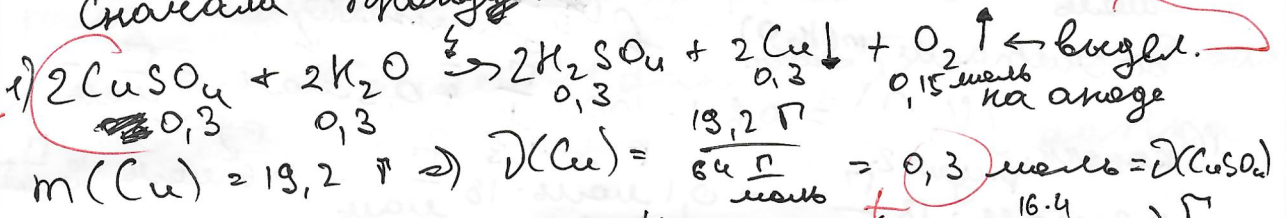 Сначала
1) 2CuSO4 + 2H2O → 2H2SO4 + 2Cu↓ + O2↑ ← выдел. на аноде
0,3 0,3 0,3 0,3 0,15 моль
m(Cu) = 19,2 г ⇒ ν(Cu) = 19,2 г / 64 г/моль = 0,3 моль = ν(CuSO4)
16·4